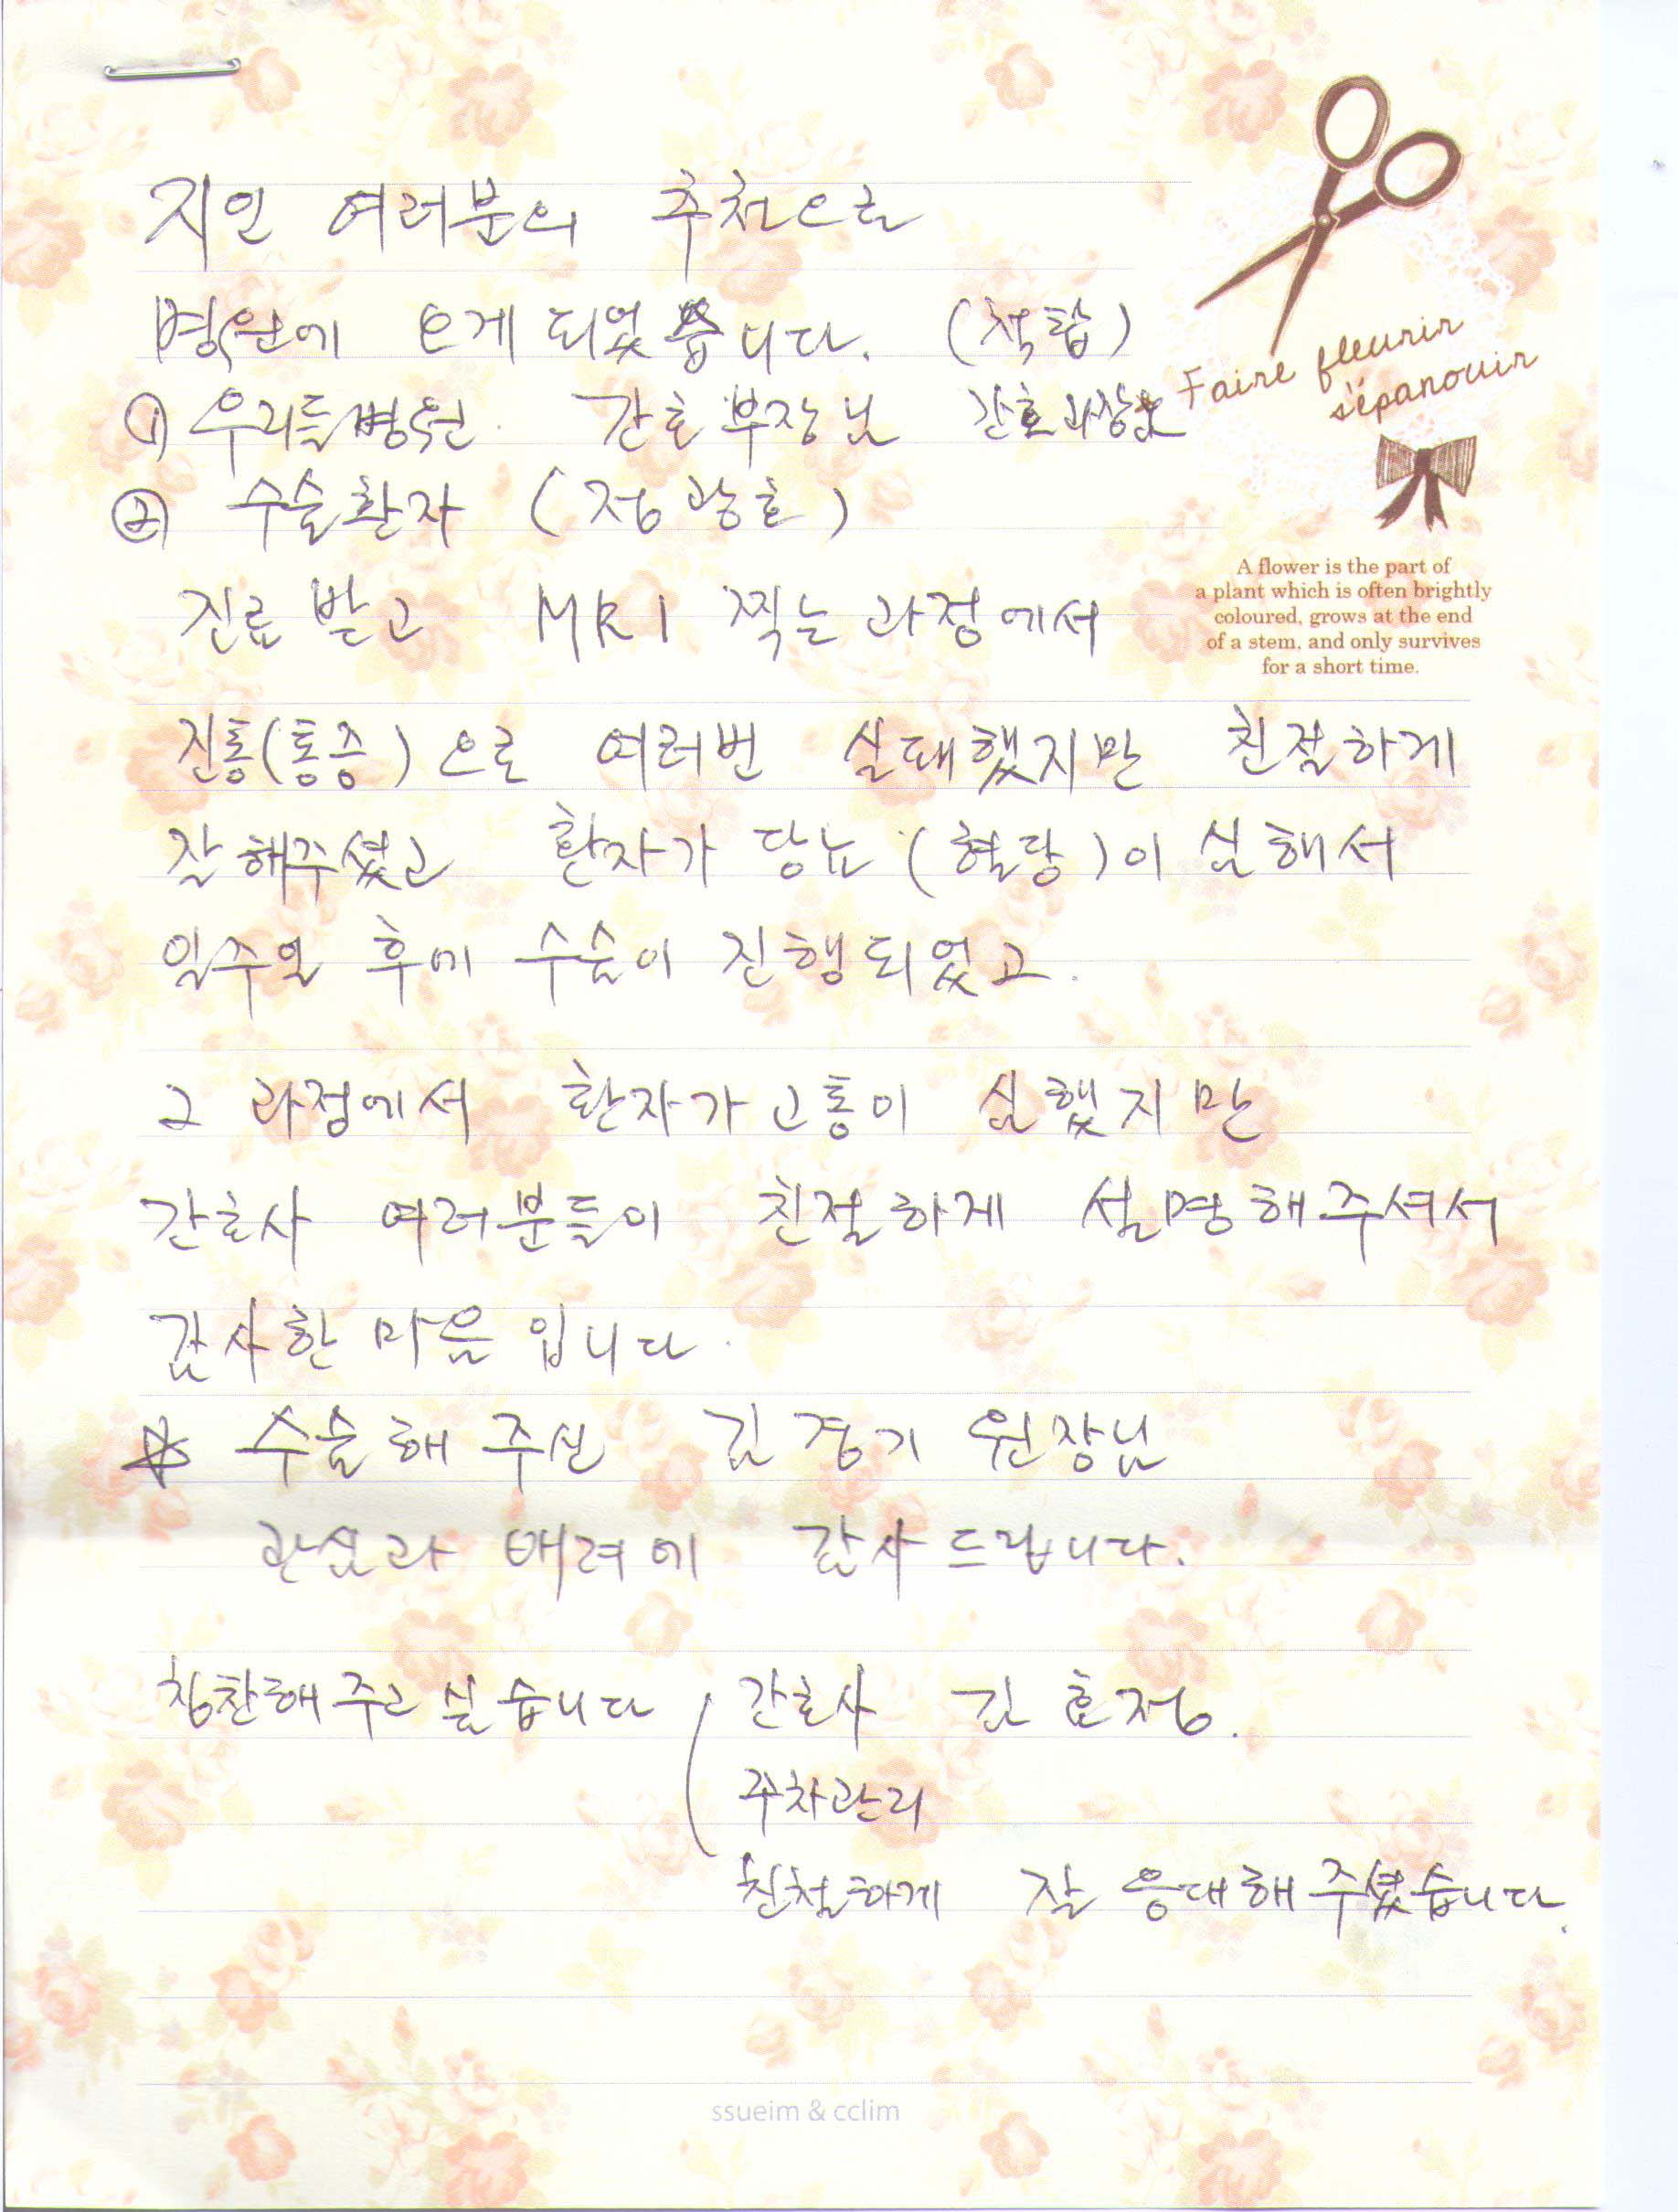 지인 여러분의 추천으로
병원에 오게 되었습니다. (척탑)
① 우리들병원. 간호부장님 간호과장님
② 수술환자 (정광호)
진료 받고 MRI 찍는 과정에서
진통(통증)으로 여러번 실패했지만 친절하게
잘해주셨고 환자가 당뇨 (혈당)이 심해서
일주일 후에 수술이 진행되었고.
그 과정에서 환자가 고통이 심했지만
간호사 여러분들이 친절하게 설명해주셔서
감사한 마음 입니다.
☆ 수술해 주신 김경기 원장님
관심과 배려에 감사드립니다.
칭찬해주고 싶습니다 ( 간호사 김효정.
주차관리
친절하게 잘 응대해 주셨습니다.
Faire fleurir
s'épanouir
A flower is the part of
a plant which is often brightly
coloured, grows at the end
of a stem, and only survives
for a short time.
ssueim & cclim